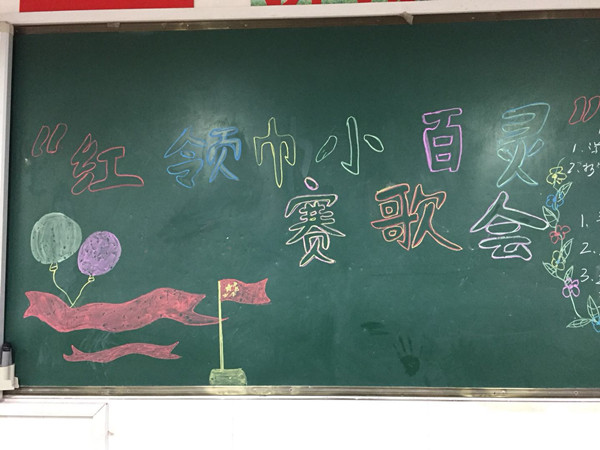 “红领巾小百灵”
赛歌会
1.
2.
1.
2.
3.